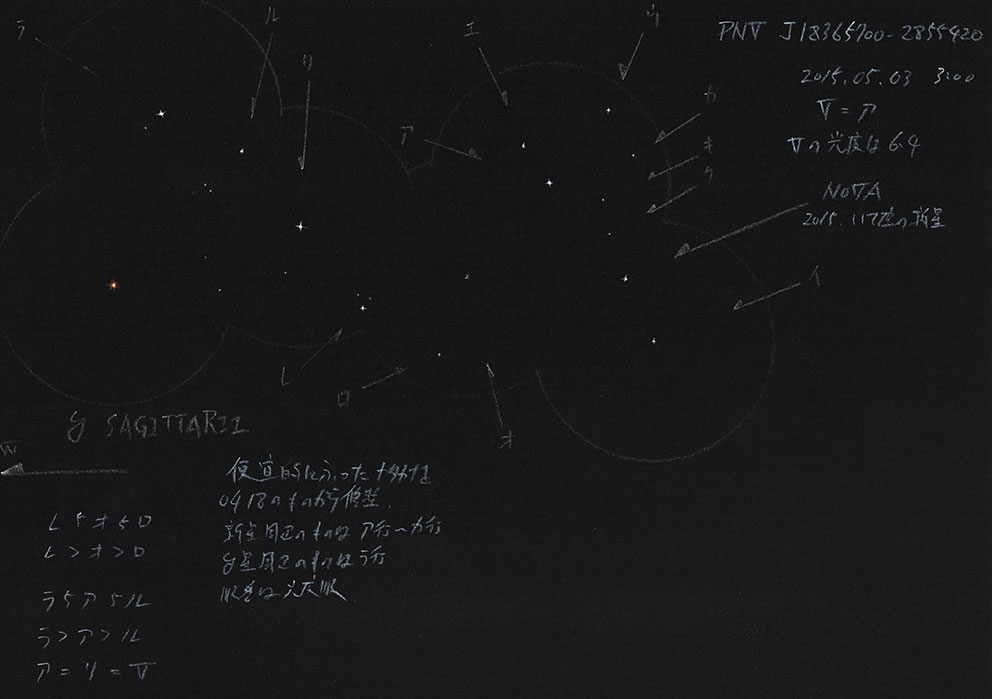 PNV J18365700-2855420
2015.05.03 3:00
V=ア
Vの光度は6.4
NOVA
2015.117座の新星
ラ
ル
リ
エ
ウ
ア
カ
キ
ク
イ
レ
ロ
オ
SAGITTARII
W
便宜的にふったカタカナを
0418のものから修整.
新星周辺のものはア行〜カ行
星周辺のものはラ行
レ5オ5ロ
レ>オ>ロ
ラ5ア5ル
ラ>ア>ル
ア=リ=V